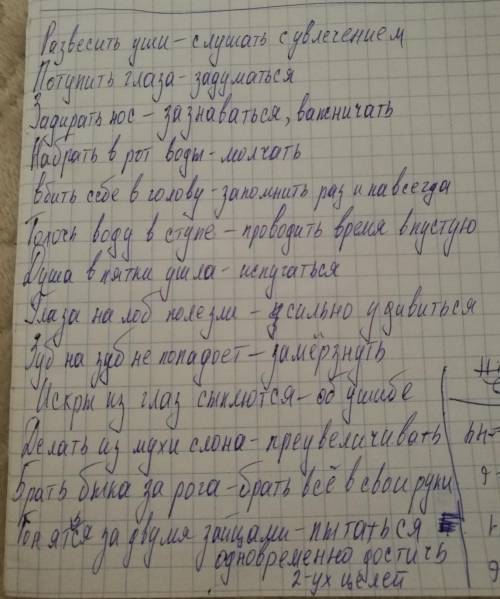 Развесить уши – слушать с увлечением
Потупить глаза – задуматься
Задирать нос – зазнаваться, важничать
Набрать в рот воды – молчать
Вбить себе в голову – запомнить раз и навсегда
Толочь воду в ступе – проводить время впустую
Душа в пятки ушла – испугаться
Глаза на лоб полезли – сильно удивиться
Зуб на зуб не попадает – замёрзнуть
Искры из глаз сыплются – об ушибе
Делать из мухи слона – преувеличивать
Брать быка за рога – брать всё в свои руки
Гонятся за двумя зайцами – пытаться
одновременно достичь
2-ух целей